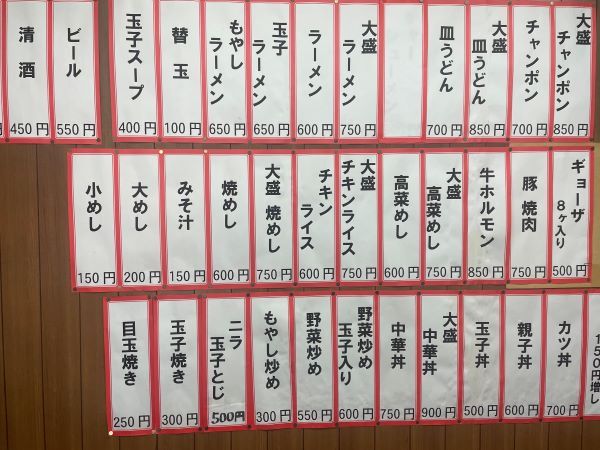 大盛
チャンポン
850円
チャンポン
700円
大盛
皿うどん
850円
皿うどん
700円
大盛
ラーメン
750円
ラーメン
600円
玉子
ラーメン
650円
もやし
ラーメン
650円
替玉
100円
玉子スープ
400円
ビール
550円
清酒
450円
円
ギョーザ
8ヶ入り
500円
豚焼肉
750円
牛ホルモン
850円
大盛
高菜めし
750円
高菜めし
600円
大盛
チキンライス
750円
チキン
ライス
600円
大盛焼めし
750円
焼めし
600円
みそ汁
150円
大めし
200円
小めし
150円
150円増し
カツ丼
700円
親子丼
600円
玉子丼
500円
大盛
中華丼
900円
中華丼
750円
野菜炒め
玉子入り
600円
野菜炒め
550円
もやし炒め
300円
ニラ
玉子とじ
500円
玉子焼き
300円
目玉焼き
250円